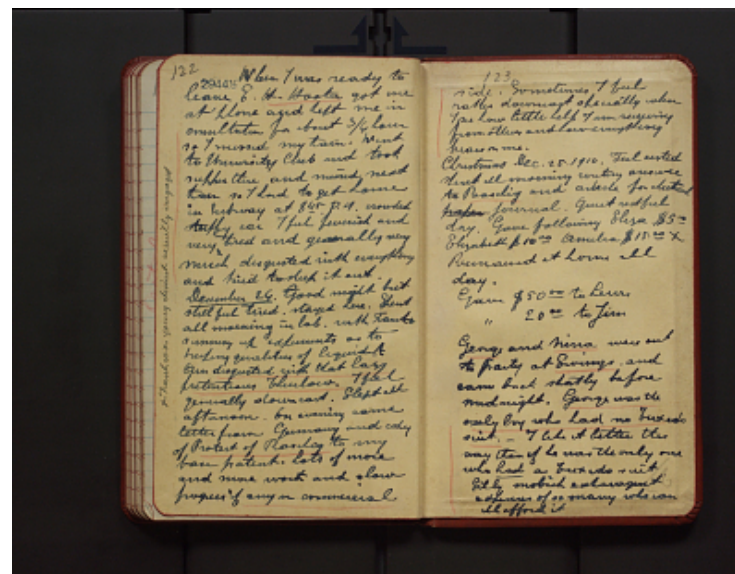 122
29448 When I was ready to
leave E. H. Hooker got me
at phone and left me in
consultation for about 3/4 hour
so I missed my train. Went
to University Club and took
supper there and missed next
train so I had to get home
in subway at 8:45 P.M. crowded
stuffy car I feel feverish and
very tired and generally very
much disgusted with everything
and tried to sleep it out.
December 24. Good night but
still feel tired. stayed here. Spent
all morning in lab. with Frank
summing up experiments as to
keeping qualities of liquid A
Am disgusted with that lazy
pretentious Thurlow. I feel
generally downcast. Slept all
afternoon. In evening came
letter from Germany and copy
of Protest of Raschig to my
base patent. lots of more
and more work and slow
progress if any in commercial
x Frank young chemist recently engaged
123
side. Sometimes I feel
rather downcast especially when
I see how little help I am receiving
from others and how everything
bears on me.
Christmas Dec. 25. 1910. Feel rested
Spent all morning writing answer
to Raschig and article for electrical
paper journal. Quiet restful
day. Gave following Eliza $5.00
Elizabeth $10.00 Amelia $15.00 x
Remained at home all
day.
Gave $50.00 to Lewis
" 20.00 to Jim
George and Nina were out
to party at Ewings and
came back shortly before
midnight. George was the
only boy who had no Tuxedo
suit. - I like it better this
way than if he was the only one
who had a Tuxedo suit
Silly snobish extravagant
expenses of so many who can
ill afford it